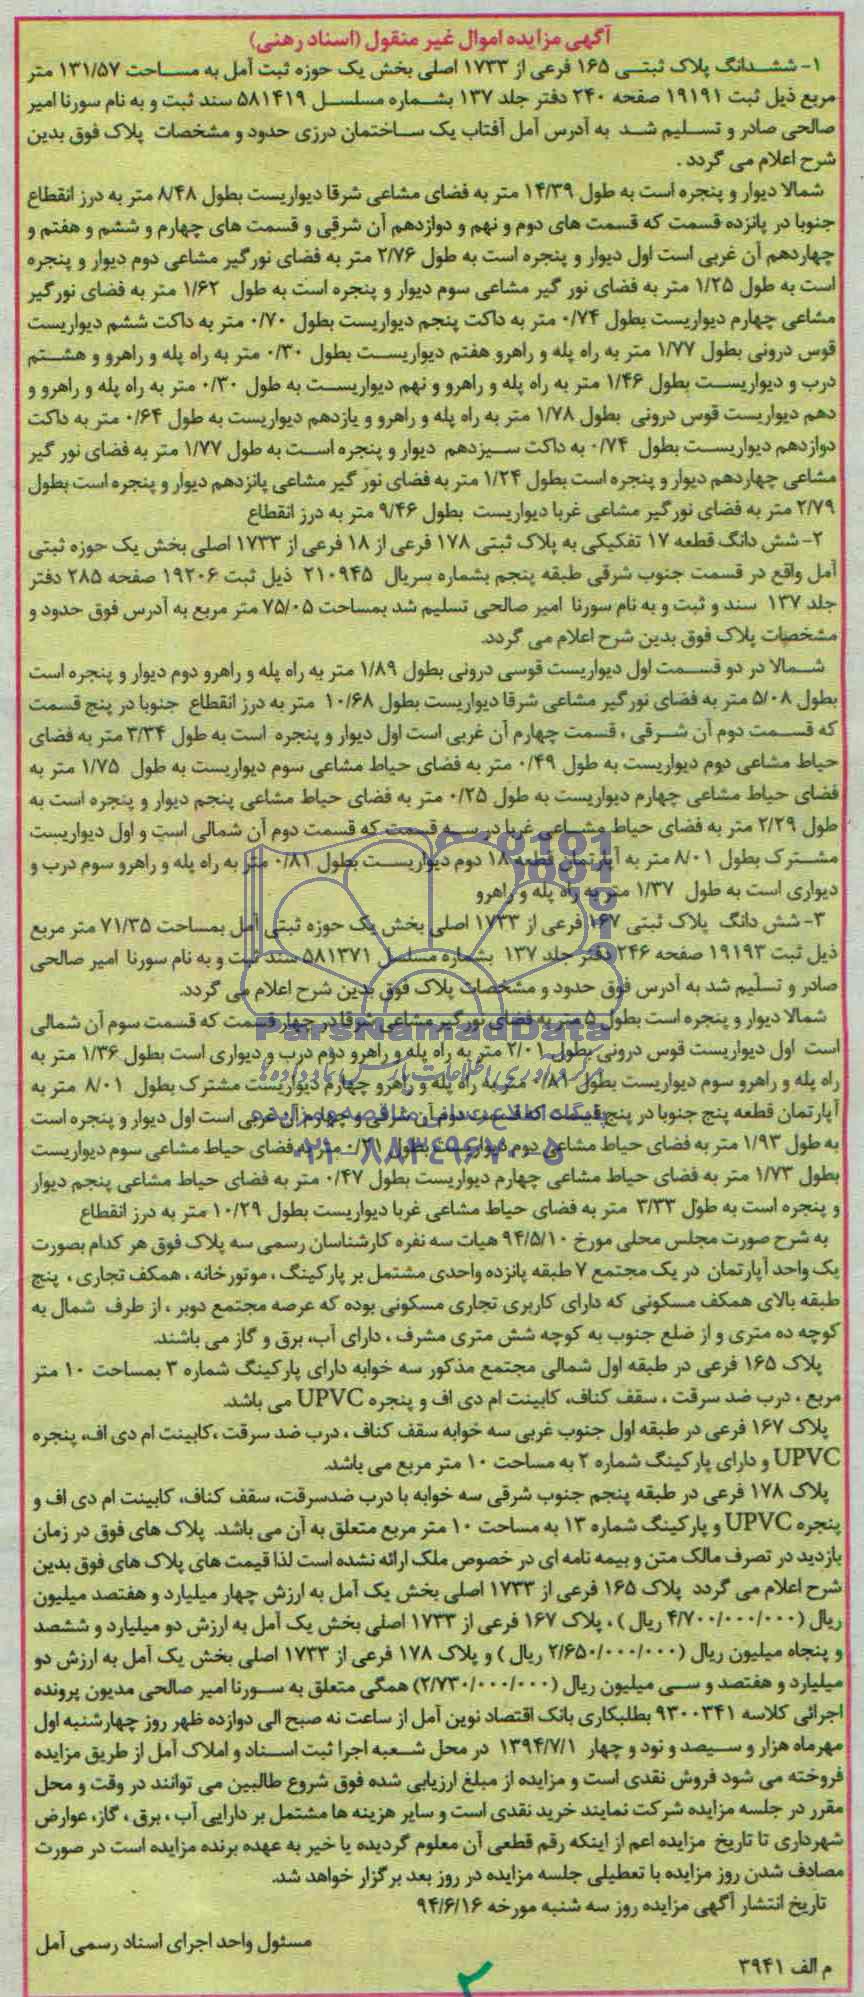 آگهی مزایده اموال غیر منقول (اسناد رهنی)
۱- ششدانگ پلاک ثبتی ۱۶۵ فرعی از ۱۷۳۳ اصلی بخش یک حوزه ثبت آمل به مساحت ۱۳۱/۵۷ متر
مربع ذیل ثبت ۱۹۱۹۱ صفحه ۲۴۰ دفتر جلد ۱۳۷ بشماره مسلسل ۵۸۱۴۱۹ سند ثبت و به نام سورنا امیر
صالحی صادر و تسلیم شد به آدرس آمل آفتاب یک ساختمان درزی حدود و مشخصات پلاک فوق بدین
شرح اعلام می گردد .
شمالا دیوار و پنجره است به طول ۱۴/۳۹ متر به فضای مشاعی شرقا دیواریست بطول ۸/۴۸ متر به درز انقطاع
جنوبا در پانزده قسمت که قسمت های دوم و نهم و دوازدهم آن شرقی و قسمت های چهارم و ششم و هفتم و
چهاردهم آن غربی است اول دیوار و پنجره است به طول ۲/۷۶ متر به فضای نورگیر مشاعی دوم دیوار و پنجره
است به طول ۱/۲۵ متر به فضای نور گیر مشاعی سوم دیوار و پنجره است به طول ۱/۶۲ متر به فضای نورگیر
مشاعی چهارم دیواریست بطول ۰/۷۴ متر به داکت پنجم دیواریست بطول ۰/۷۰ متر به داکت ششم دیواریست
قوس درونی بطول ۱/۷۷ متر به راه پله و راهرو هفتم دیواریست بطول ۰/۳۰ متر به راه پله و راهرو و هشتم
درب و دیواریست بطول ۱/۴۶ متر به راه پله و راهرو و نهم دیواریست به طول ۰/۳۰ متر به راه پله و راهرو و
دهم دیواریست قوس درونی بطول ۱/۷۸ متر به راه پله و راهرو و یازدهم دیواریست به طول ۰/۶۴ متر به داکت
دوازدهم دیواریست بطول ۰/۷۴ به داکت سیزدهم دیوار و پنجره است به طول ۱/۷۷ متر به فضای نور گیر
مشاعی چهاردهم دیوار و پنجره است بطول ۱/۲۴ متر به فضای نور گیر مشاعی پانزدهم دیوار و پنجره است بطول
۲/۷۹ متر به فضای نورگیر مشاعی غربا دیواریست بطول ۹/۴۶ متر به درز انقطاع
۲- شش دانگ قطعه ۱۷ تفکیکی به پلاک ثبتی ۱۷۸ فرعی از ۱۸ فرعی از ۱۷۳۳ اصلی بخش یک حوزه ثبتی
آمل واقع در قسمت جنوب شرقی طبقه پنجم بشماره سریال ۲۱۰۹۴۵ ذیل ثبت ۱۹۲۰۶ صفحه ۲۸۵ دفتر
جلد ۱۳۷ سند و ثبت و به نام سورنا امیر صالحی تسلیم شد بمساحت ۷۵/۰۵ متر مربع به آدرس فوق حدود و
مشخصات پلاک فوق بدین شرح اعلام می گردد.
شمالا در دو قسمت اول دیواریست قوسی درونی بطول ۱/۸۹ متر به راه پله و راهرو دوم دیوار و پنجره است
بطول ۵/۰۸ متر به فضای نورگیر مشاعی شرقا دیواریست بطول ۱۰/۶۸ متر به درز انقطاع جنوبا در پنج قسمت
که قسمت دوم آن شرقی ، قسمت چهارم آن غربی است اول دیوار و پنجره است به طول ۳/۳۴ متر به فضای
حیاط مشاعی دوم دیواریست به طول ۰/۴۹ متر به فضای حیاط مشاعی سوم دیواریست به طول ۱/۷۵ متر به
فضای حیاط مشاعی چهارم دیواریست به طول ۰/۲۵ متر به فضای حیاط مشاعی پنجم دیوار و پنجره است به
طول ۲/۲۹ متر به فضای حیاط مشاعی غربا در سه قسمت که قسمت دوم آن شمالی است و اول دیواریست
مشترک بطول ۸/۰۱ متر به آپارتمان قطعه ۱۸ دوم دیواریست بطول ۰/۸۱ متر به راه پله و راهرو سوم درب و
دیواری است به طول ۱/۳۷ متر به راه پله و راهرو
۳- شش دانگ پلاک ثبتی ۱۶۷ فرعی از ۱۷۳۳ اصلی بخش یک حوزه ثبتی آمل بمساحت ۷۱/۳۵ متر مربع
ذیل ثبت ۱۹۱۹۳ صفحه ۲۴۶ دفتر جلد ۱۳۷ بشماره مسلسل ۵۸۱۳۷۱ سند ثبت و به نام سورنا امیر صالحی
صادر و تسلیم شد به آدرس فوق حدود و مشخصات پلاک فوق بدین شرح اعلام می گردد.
شمالا دیوار و پنجره است بطول ۵ متر به فضای نورگیر مشاعی شرقا در چهار قسمت که قسمت سوم آن شمالی
ParsNamadData
است اول دیواریست قوس درونی بطول ۲/۰۱ متر به راه پله و راهرو دوم درب و دیواری است بطول ۱/۳۶ متر به
راه پله و راهرو سوم دیواریست بطول ۰/۸۹ متر به راه پله و راهرو چهارم دیواریست مشترک بطول ۸/۰۱ متر به
آپارتمان قطعه پنج جنوبا در پنج قسمت که قسمت دوم آن شرقی و چهارم آن غربی است اول دیوار و پنجره است
به طول ۱/۹۳ متر به فضای حیاط مشاعی دوم دیواریست بطول ۰/۲۱ متر به فضای حیاط مشاعی سوم دیواریست
۰۲۱-۸۸۳۴۹۶۷۰-۵
بطول ۱/۷۳ متر به فضای حیاط مشاعی چهارم دیواریست بطول ۰/۴۷ متر به فضای حیاط مشاعی پنجم دیوار
و پنجره است به طول ۳/۳۳ متر به فضای حیاط مشاعی غربا دیواریست بطول ۱۰/۲۹ متر به درز انقطاع
به شرح صورت مجلس محلی مورخ ۹۴/۵/۱۰ هیات سه نفره کارشناسان رسمی سه پلاک فوق هر کدام بصورت
یک واحد آپارتمان در یک مجتمع ۷ طبقه پانزده واحدی مشتمل بر پارکینگ ، موتورخانه ، همکف تجاری ، پنج
طبقه بالای همکف مسکونی که دارای کاربری تجاری مسکونی بوده که عرصه مجتمع دوبر ، از طرف شمال به
کوچه ده متری و از ضلع جنوب به کوچه شش متری مشرف ، دارای آب، برق و گاز می باشند.
پلاک ۱۶۵ فرعی در طبقه اول شمالی مجتمع مذکور سه خوابه دارای پارکینگ شماره ۳ بمساحت ۱۰ متر
مربع ، درب ضد سرقت ، سقف کناف، کابینت ام دی اف و پنجره UPVC می باشد.
پلاک ۱۶۷ فرعی در طبقه اول جنوب غربی سه خوابه سقف کناف ، درب ضد سرقت ،کابینت ام دی اف، پنجره
UPVC و دارای پارکینگ شماره ۲ به مساحت ۱۰ متر مربع می باشد.
پلاک ۱۷۸ فرعی در طبقه پنجم جنوب شرقی سه خوابه با درب ضدسرقت، سقف کناف، کابینت ام دی اف و
پنجره UPVC و پارکینگ شماره ۱۳ به مساحت ۱۰ متر مربع متعلق به آن می باشد. پلاک های فوق در زمان
بازدید در تصرف مالک متن و بیمه نامه ای در خصوص ملک ارائه نشده است لذا قیمت های پلاک های فوق بدین
شرح اعلام می گردد پلاک ۱۶۵ فرعی از ۱۷۳۳ اصلی بخش یک آمل به ارزش چهار میلیارد و هفتصد میلیون
ریال (۴/۷۰۰/۰۰۰/۰۰۰ ریال ) ، پلاک ۱۶۷ فرعی از ۱۷۳۳ اصلی بخش یک آمل به ارزش دو میلیارد و ششصد
و پنجاه میلیون ریال (۲/۶۵۰/۰۰۰/۰۰۰ ریال ) و پلاک ۱۷۸ فرعی از ۱۷۳۳ اصلی بخش یک آمل به ارزش دو
میلیارد و هفتصد و سی میلیون ریال (۲/۷۳۰/۰۰۰/۰۰۰) همگی متعلق به سورنا امیر صالحی مدیون پرونده
اجرائی کلاسه ۹۳۰۰۳۴۱ بطلبکاری بانک اقتصاد نوین آمل از ساعت نه صبح الی دوازده ظهر روز چهارشنبه اول
مهرماه هزار و سیصد و نود و چهار ۱۳۹۴/۷/۱ در محل شعبه اجرا ثبت اسناد و املاک آمل از طریق مزایده
فروخته می شود فروش نقدی است و مزایده از مبلغ ارزیابی شده فوق شروع طالبین می توانند در وقت و محل
مقرر در جلسه مزایده شرکت نمایند خرید نقدی است و سایر هزینه ها مشتمل بر دارایی آب ، برق ، گاز، عوارض
شهرداری تا تاریخ مزایده اعم از اینکه رقم قطعی آن معلوم گردیده یا خیر به عهده برنده مزایده است در صورت
مصادف شدن روز مزایده با تعطیلی جلسه مزایده در روز بعد برگزار خواهد شد.
تاریخ انتشار آگهی مزایده روز سه شنبه مورخه ۹۴/۶/۱۶
مسئول واحد اجرای اسناد رسمی آمل
م الف ۳۹۴۱